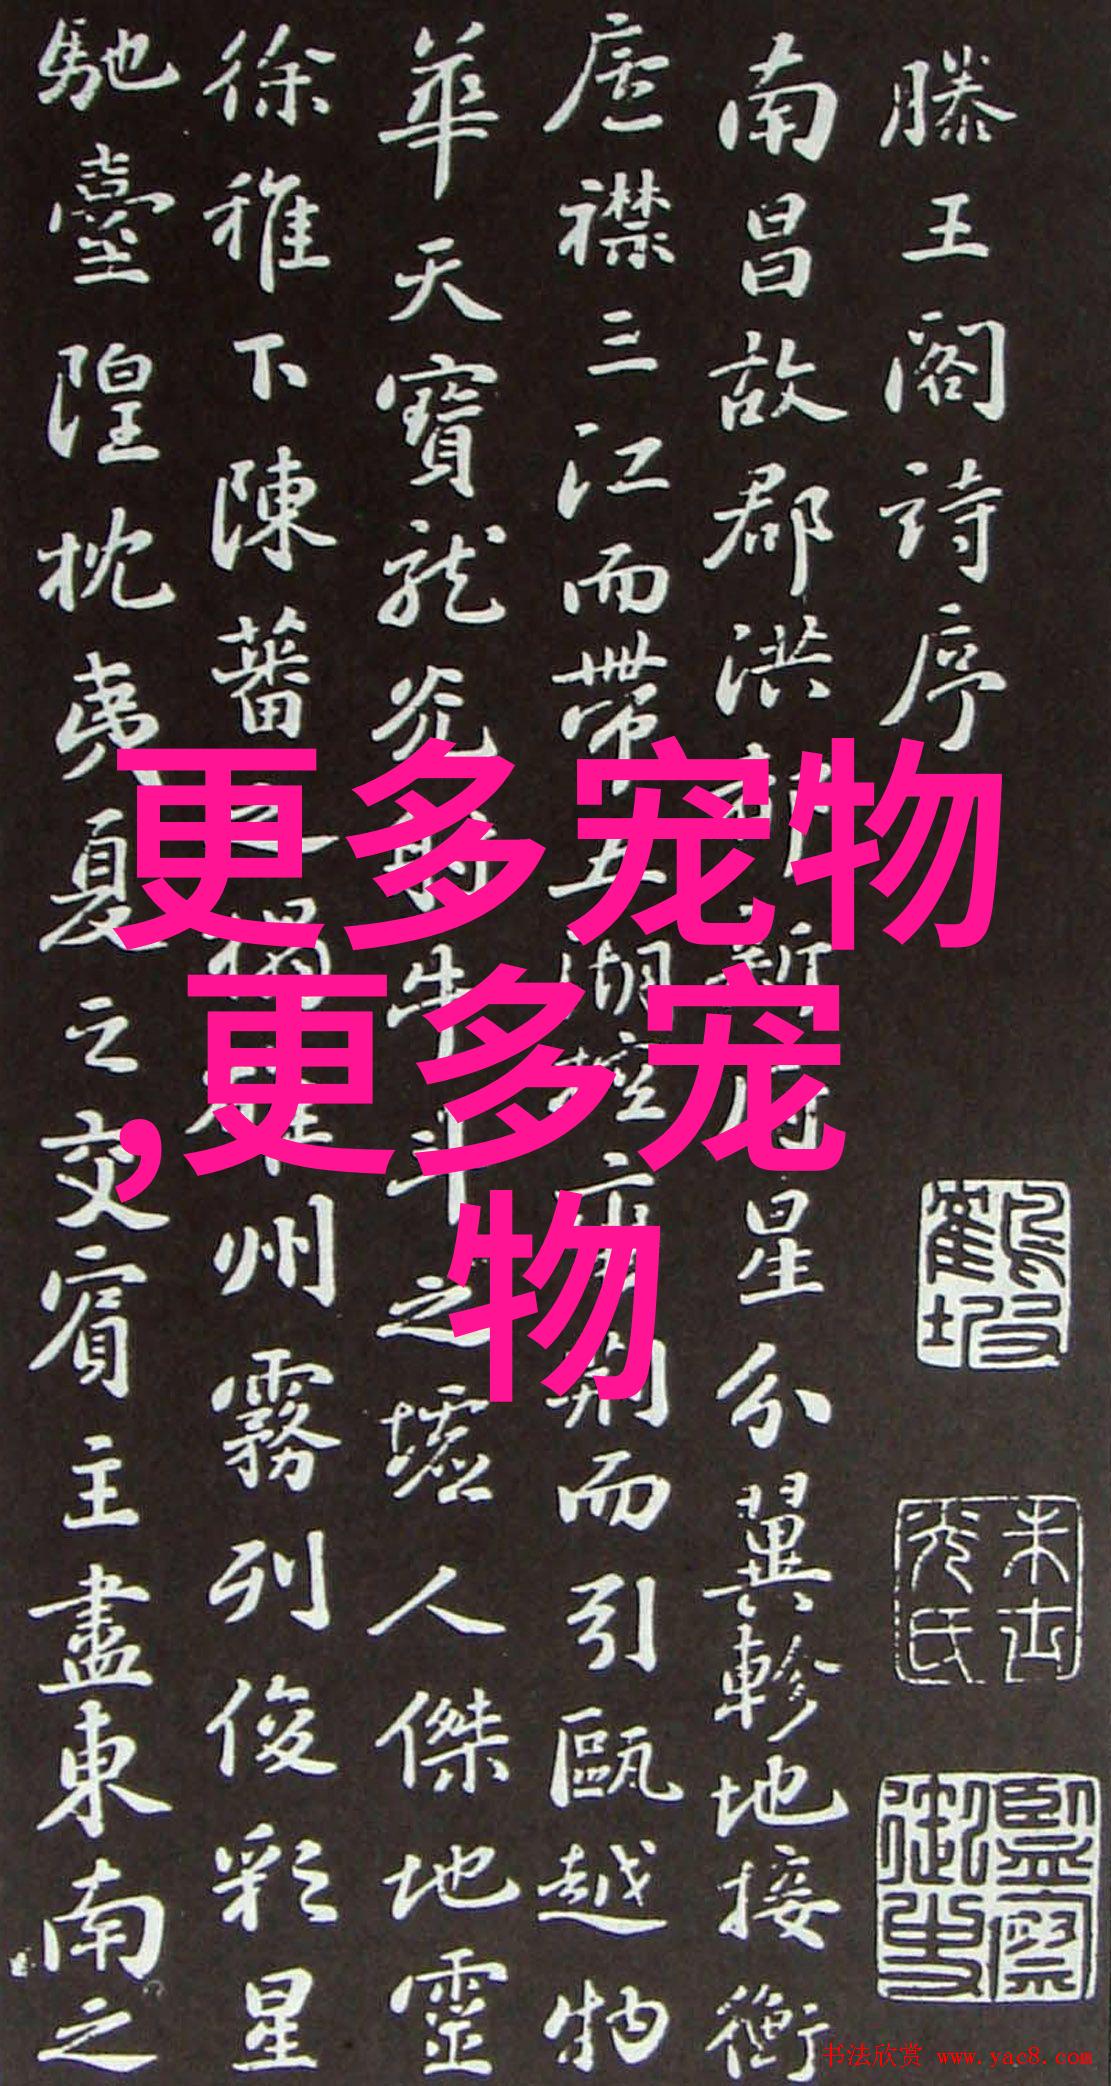 滕王阁詩序
南昌故郡洪都新府星分翼軫地接衡
廬襟三江而帶五湖控
荊而引甌越物
華天寶龍光射牛斗之墟人傑地靈
徐稚下陳蕃之榻雄州霧列俊彩星
馳臺隍枕夷夏之交賓主盡東南之
更多宠物
,更多宠
物
书法欣赏 www.yac8.com